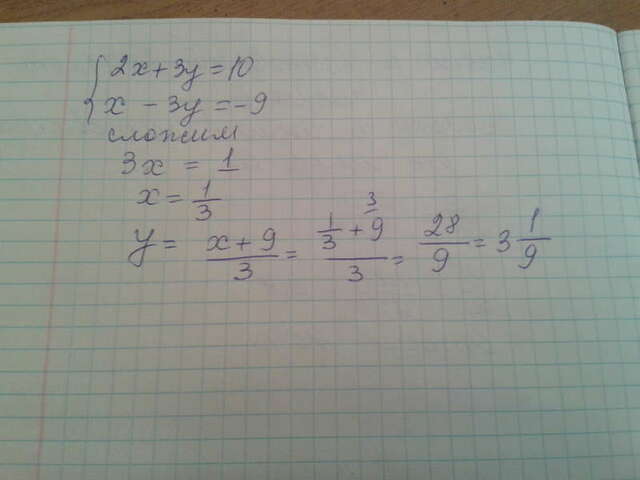 {2x+3y=10
x-3y=-9
сложим
3x = 1
x = 1/3
y = (x+9)/3 = (1/3 + 9^3)/3 = 28/9 = 3 1/9